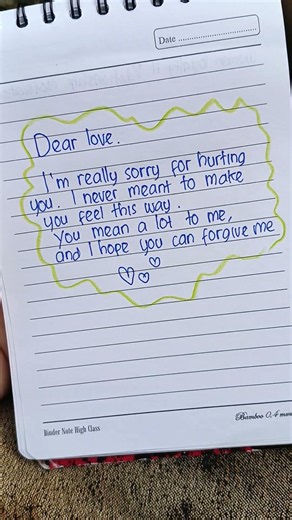 Date ....................
Dear love.
I'm really sorry for hurting
you. I never meant to make
you feel this way.
You mean a lot to me,
and I hope you can forgive me
Binder Note High Class
Bamboo 0.4 mm